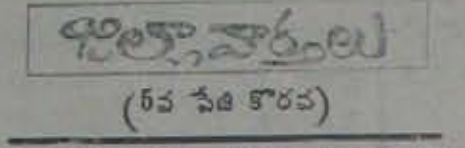 జిల్లా వార్తలు
(5వ పేజి కొరవ)